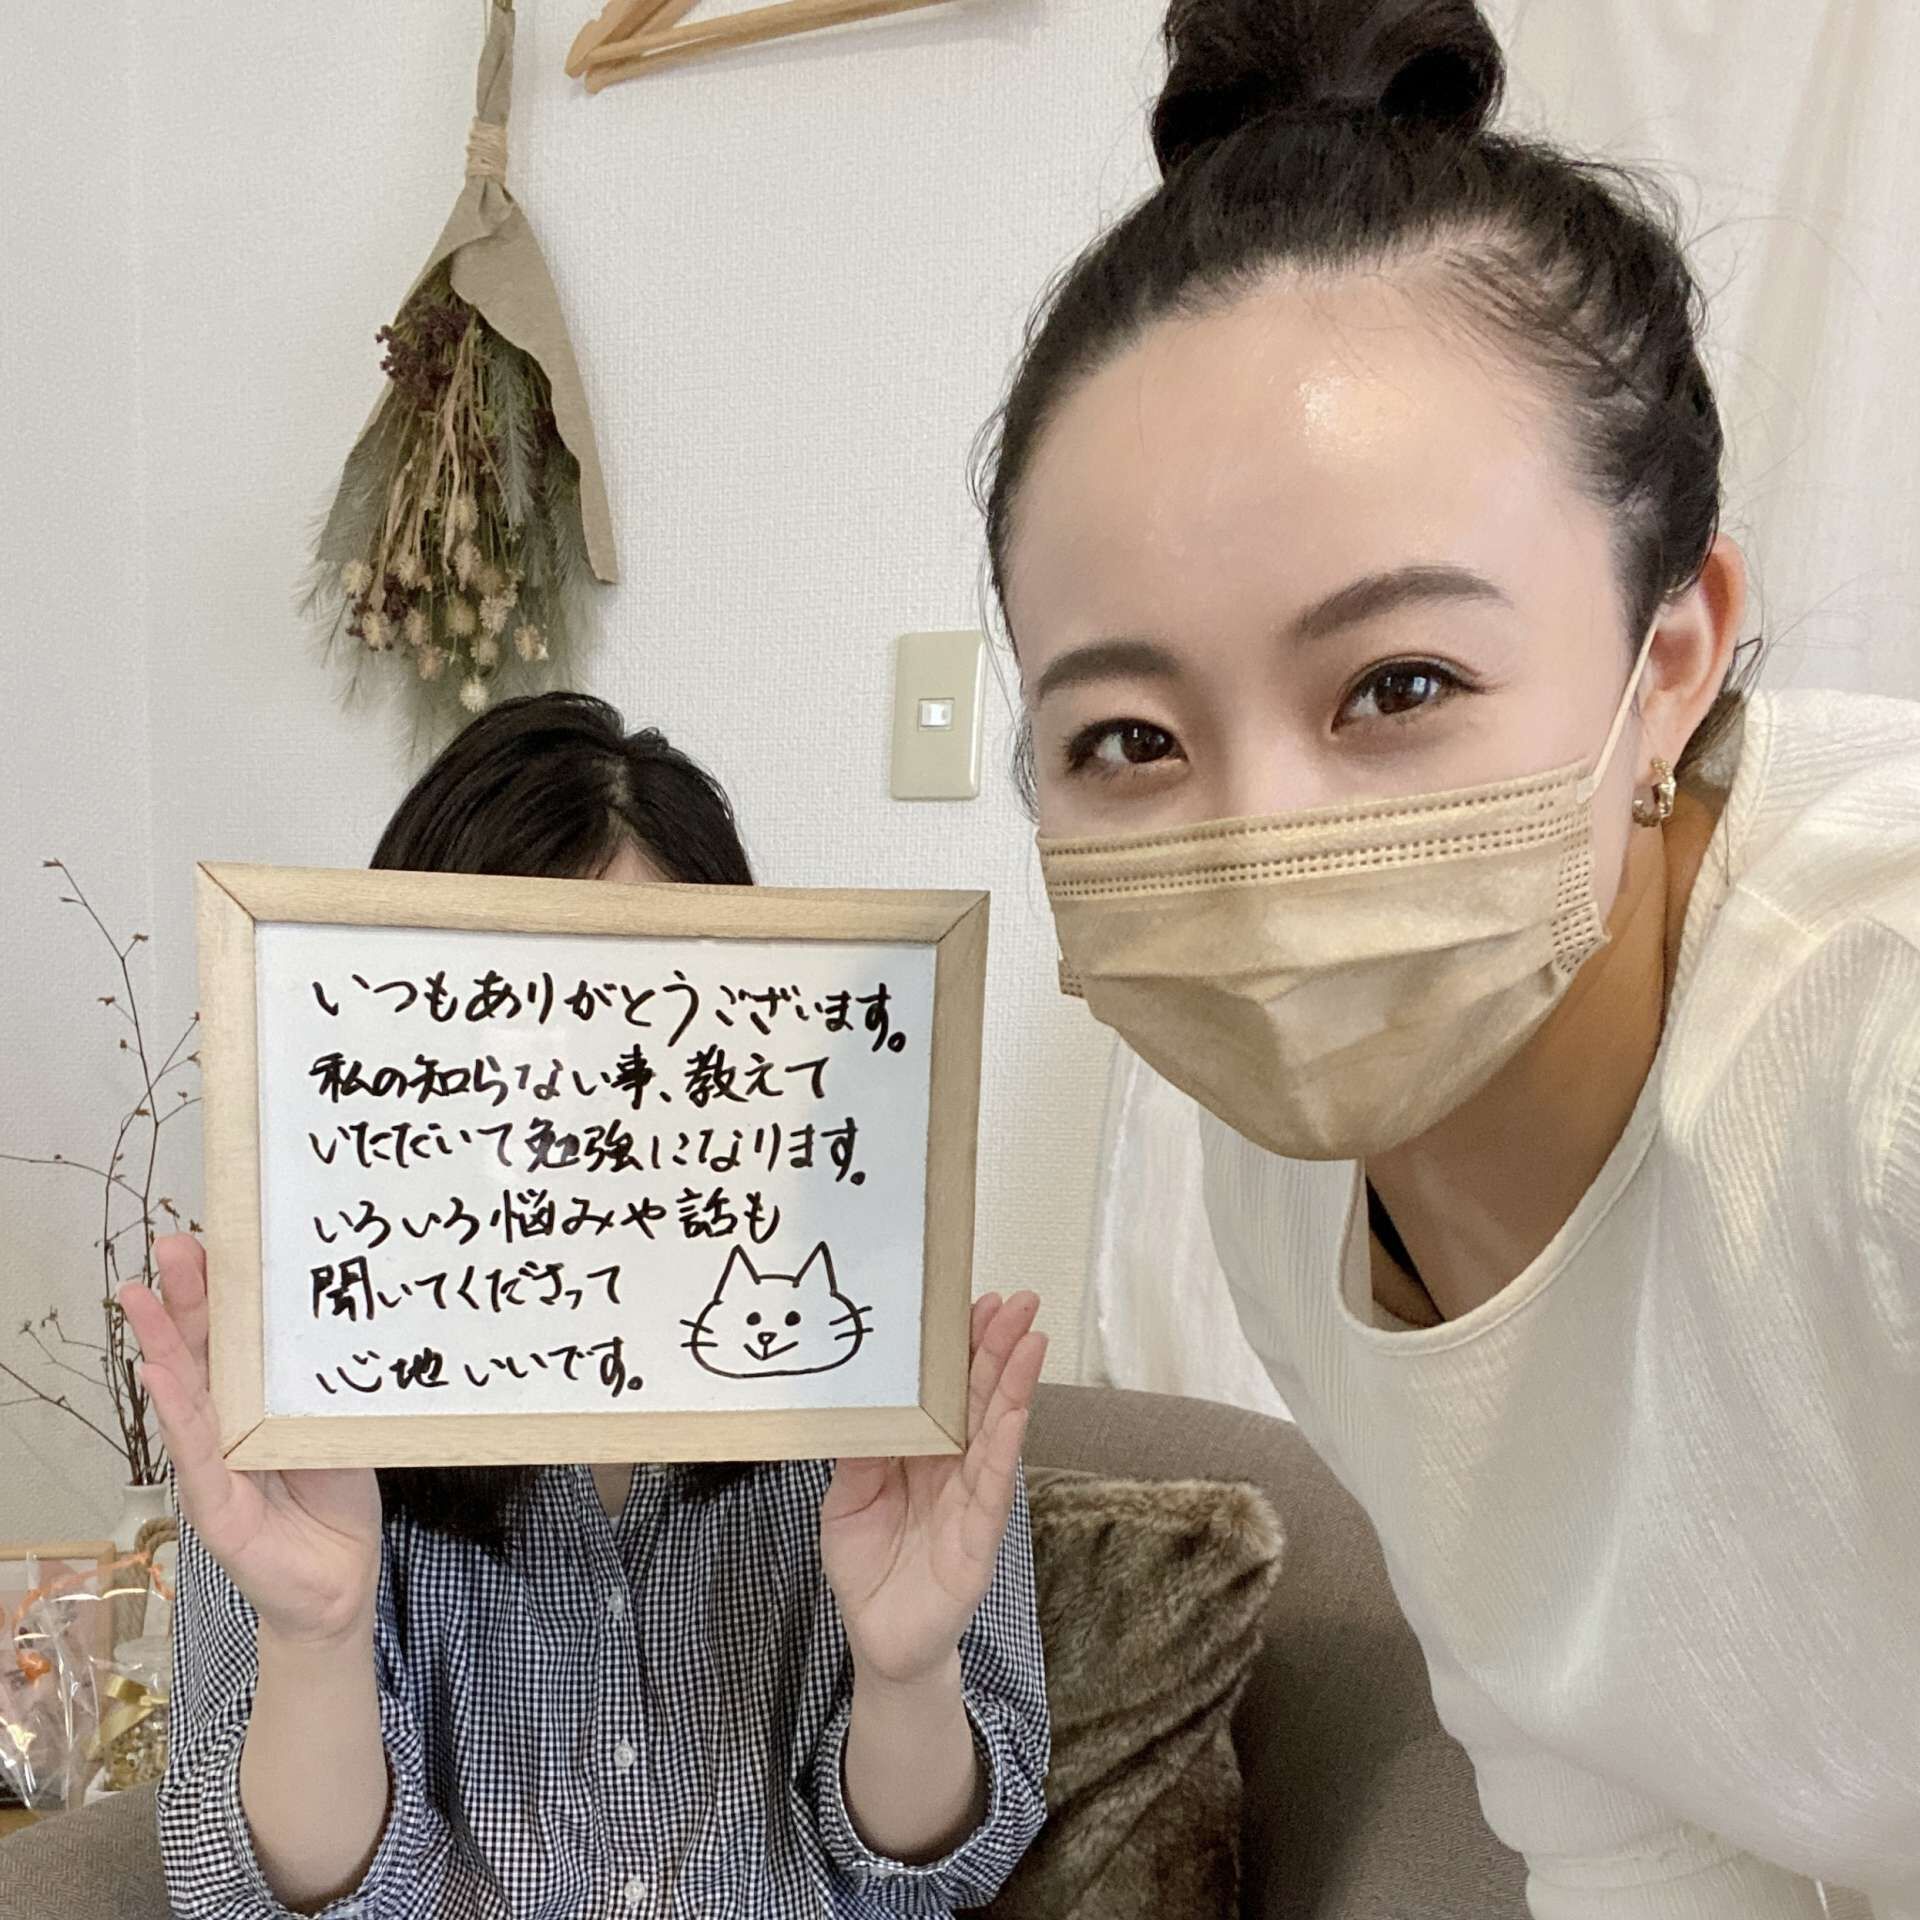 いつもありがとうございます。
私の知らない事、教えて
いただいて勉強になります。
いろいろ悩みや話も
聞いてくださって
心地いいです。